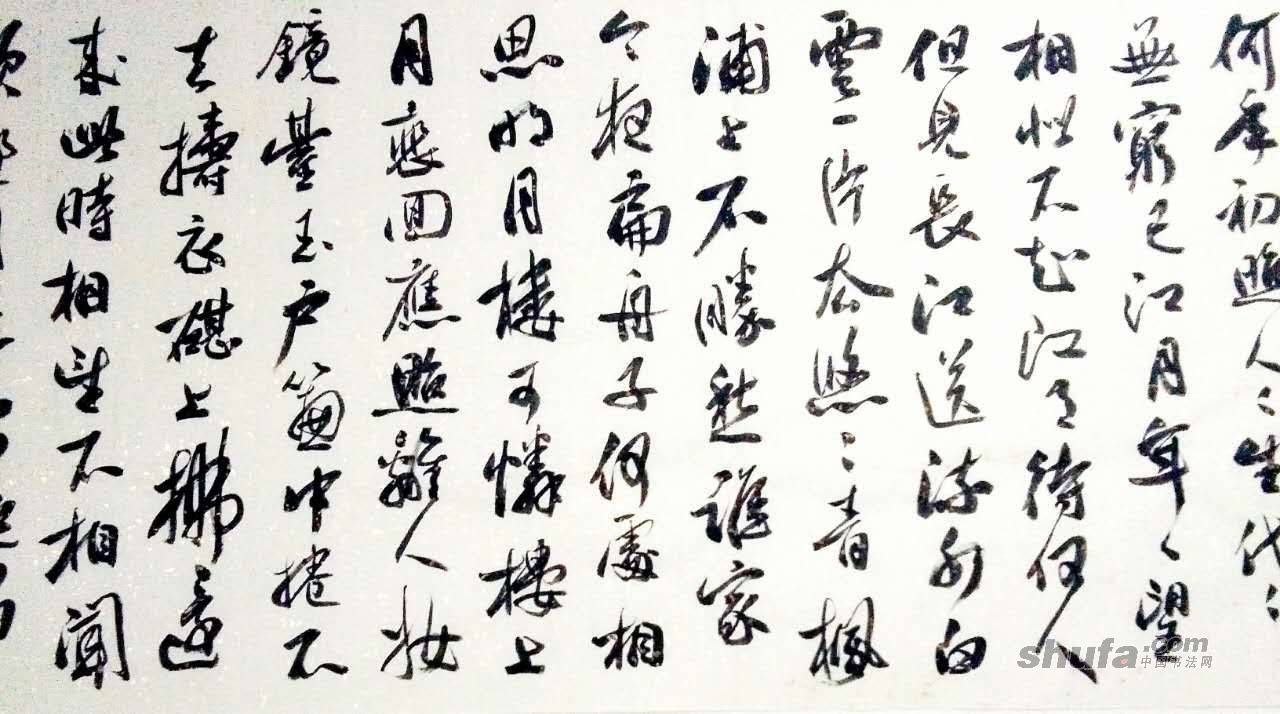 何年初照人〻生代〻
無窮已江月年〻望
相似不知江月待何人
但見長江送流水白
雲一片去悠〻青楓
浦上不勝愁誰家
今夜扁舟子何處相
思明月樓可憐樓上
月裴回應照離人妝
鏡臺玉戶簾中捲不
去擣衣碪上拂還
來此時相望不相聞
shufa.com
中国书法网